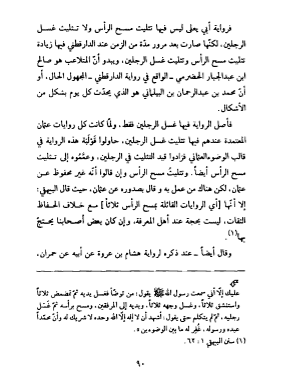 فرواية أبي يعلى ليس فيها تثليث مسح الرأس ولا تثليث غسل
الرجلين، لكنّها صارت بعد مرور مدّة من الزمن عند الدارقطني فيها زيادة
تثليث مسح الرأس وتثليث غسل الرجلين، ويبدو أنّ المتلاعب هو صالح
ابن عبدالجبار الحضرمي ـ الواقع في رواية الدارقطني ـ المجهول الحال، أو
أنّ محمد بن عبدالرحمان بن البيلماني هو الذي يحدّث كل يوم بشكل من
الأشكال.
فأصل الرواية فيها غسل الرجلين فقط، ولمّا كانت كل روايات عثمان
المعتمدة عندهم فيها تثليث غسل الرجلين، حاولوا قَوْلَبَة هذه الرواية في
قالب الوضوء العثماني فزادوا قيد التثليث في الرجلين، وعمّموه إلى تثليث
مسح الرأس أيضاً. وتثليث مسح الرأس وإن قالوا أنه غير محفوظ عن
عثمان، لكن هناك من عمل به و قال بصدوره عن عثمان، حيث قال البيهقي:
إلّا أنّها [أي الروايات القائلة بمسح الرأس ثلاثاً] مع خلاف الحفاظ
الثقات، ليست بحجة عند أهل المعرفة، وإن كان بعض أصحابنا يحتجّ
بها(١).
وقال أيضاً ـ عند ذكره لرواية هشام بن عروة عن أبيه عن حمران،
عليك إلّا أنّي سمعت رسول الله ﷺ يقول: من توضّأ فغسل يديه ثمّ تمضمض ثلاثاً
واستنشق ثلاثاً، وغسل وجهه ثلاثاً، ويديه إلى المرفقين، ومسح برأسه ثمّ غسل
رجليه، ثمّ لم يتكلم حتى يقول: أشهد أن لا إله إلّا الله وحده لا شريك له وأنّ محمّداً
عبده ورسوله، غُفِر له ما بين الوضوءين ».
(١) سنن البيهقي ١: ٦٢.
٩٠